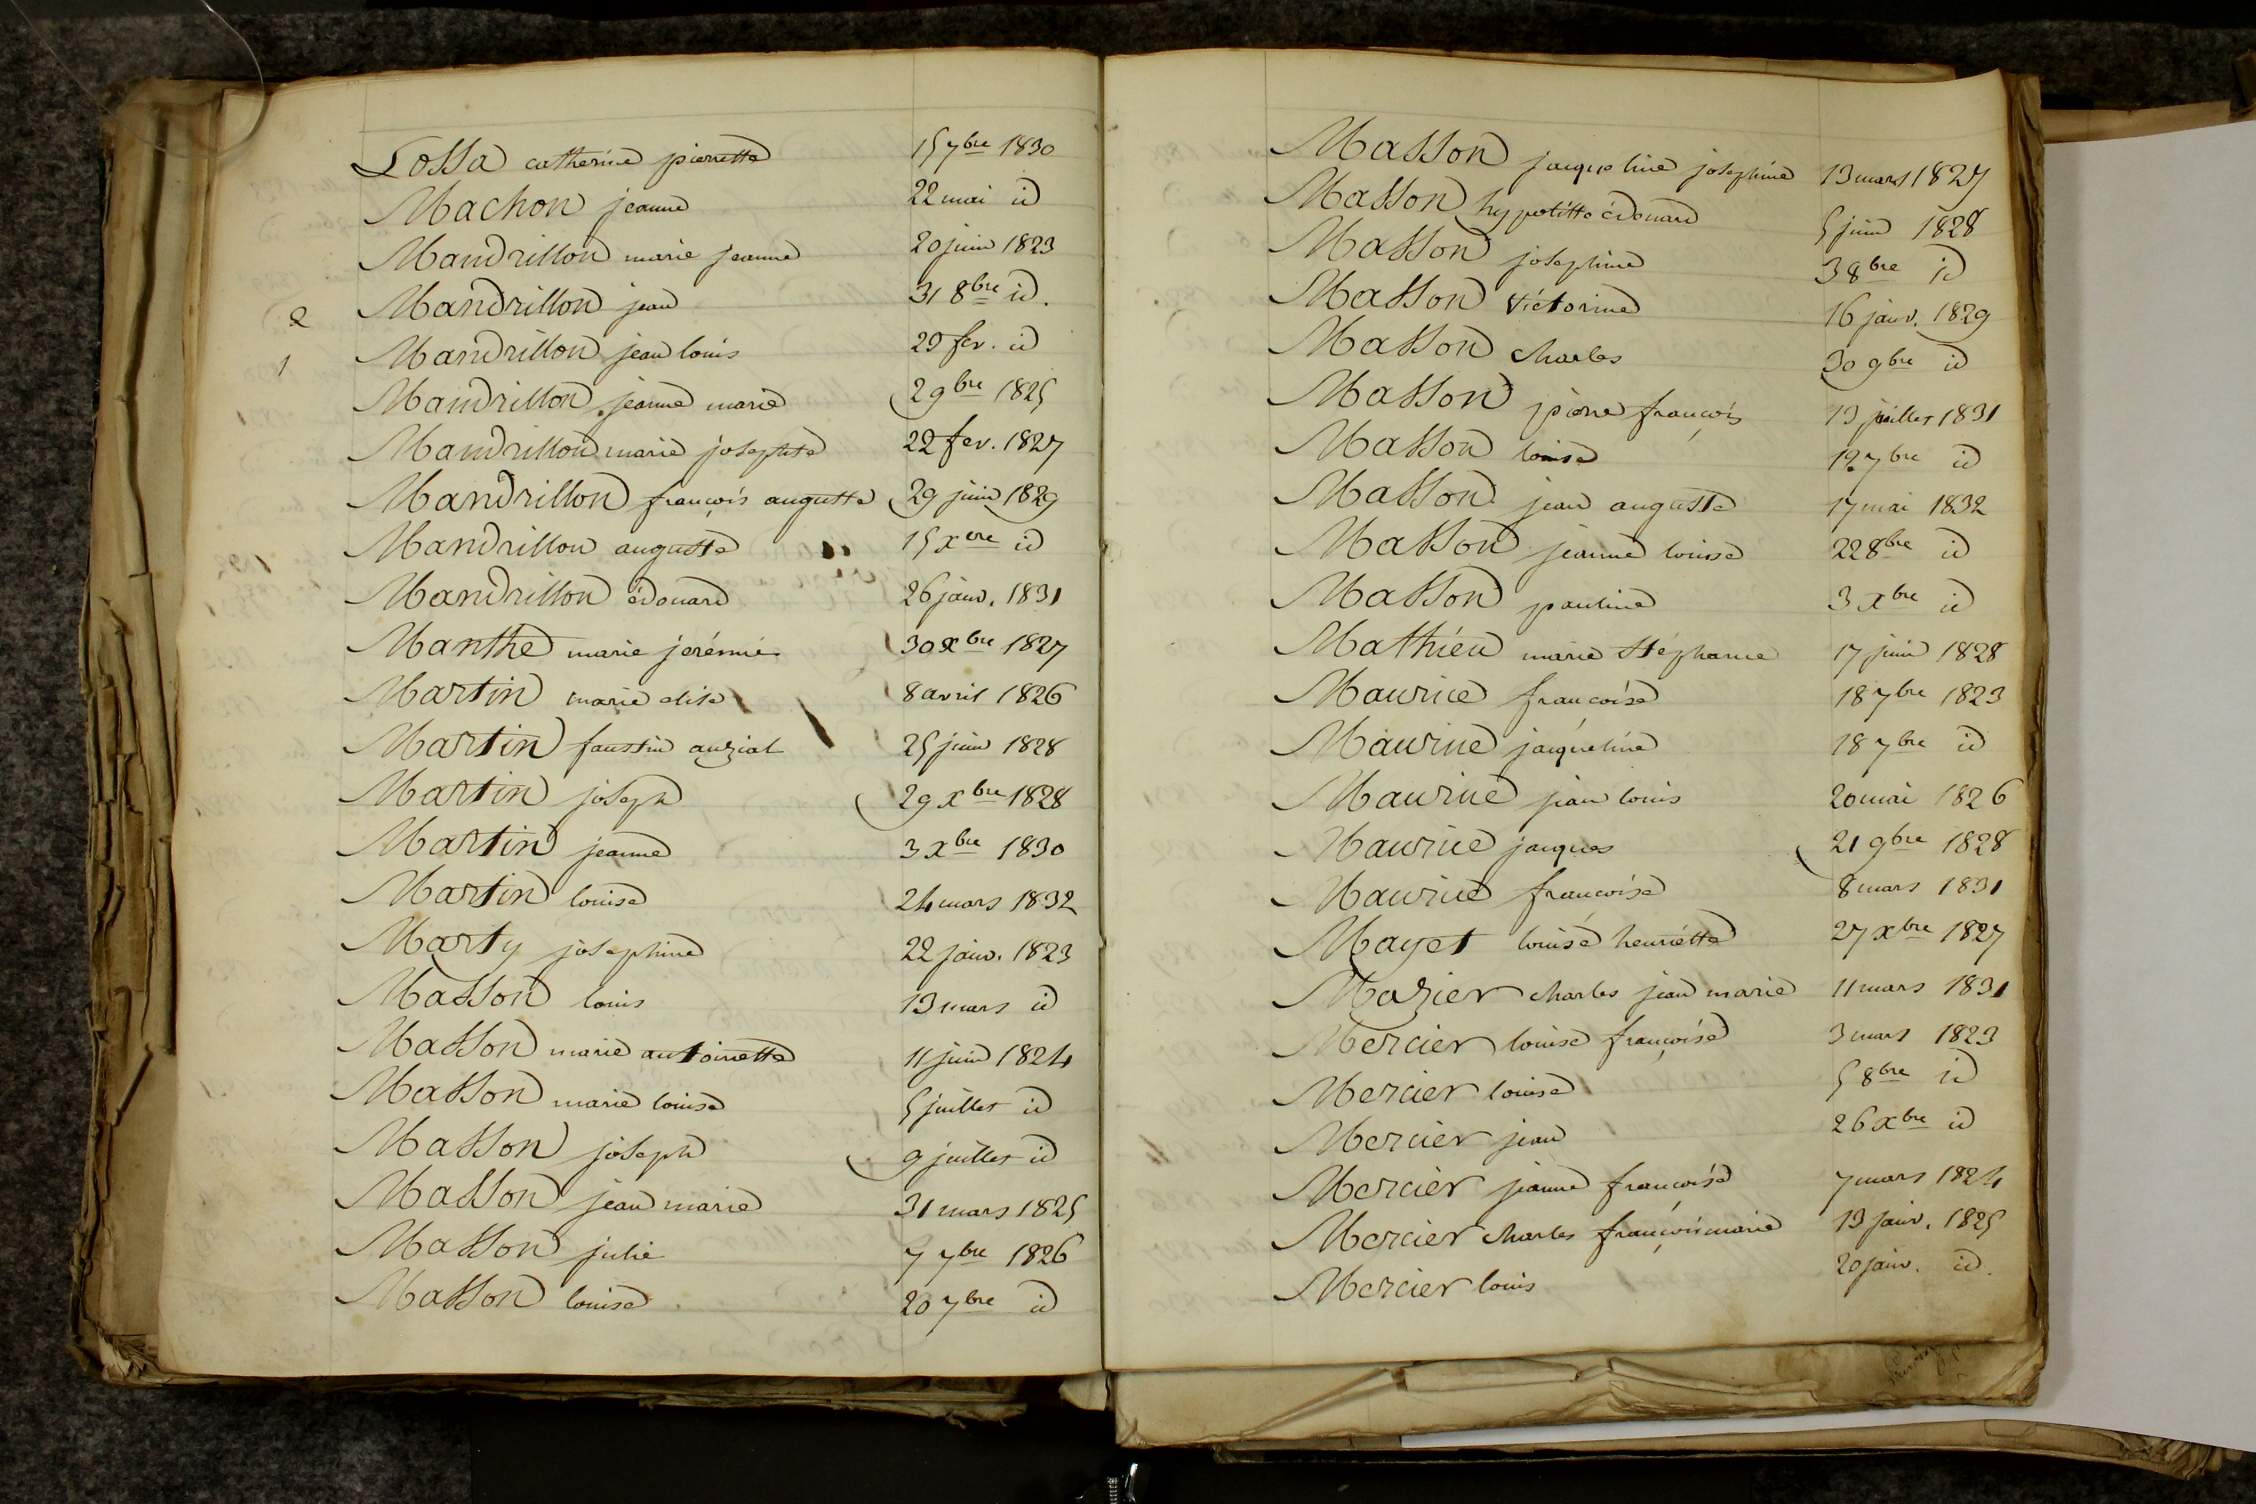 Lossa catherine pierrette 15 7bre 1830
Machon jeanne 22 mai id
Mandrillon marie jeanne 20 juin 1823
2 Mandrillon jean 31 8bre id.
1 Mandrillon jean louis 29 fev. id
Mandrillon jeanne marie 2 9bre 1825
Mandrillon marie josephte 22 fev. 1827
Mandrillon françois auguste 29 juin 1829
Mandrillon auguste 15 xbre id
Mandrillon édouard 26 janv. 1831
Manthe marie jérémie 30 xbre 1827
Martin marie elise 8 avril 1826
Martin faustin 25 juin 1828
Martin joseph 29 xbre 1828
Martin jeanne 3 xbre 1830
Martin louise 24 mars 1832
Marty josephine 22 janv. 1823
Masson louis 13 mars id
Masson marie antoinette 11 juin 1824
Masson marie louise 5 juillet id
Masson joseph 9 juillet id
Masson jean marie 31 mars 1825
Masson julie 7 7bre 1826
Masson louise 20 7bre id
Masson jacqueline josephine 13 mars 1827
Masson hypolitte édouard 5 juin 1828
Masson josephine 3 8bre id
Masson Victorine 16 janv. 1829
Masson charles 30 9bre id
Masson pierre françois 13 juillet 1831
Masson louise 12 7bre id
Masson jean auguste 17 mai 1832
Masson jeanne louise 22 8bre id
Masson pauline 3 xbre id
Mathieu marie Stéphanie 17 juin 1828
Maurice francoise 18 7bre 1823
Maurice jacqueline 18 7bre id
Maurice jean louis 20 mai 1826
Maurice jacques 21 9bre 1828
Maurice francoise 8 mars 1831
Mayet louise henriette 27 xbre 1827
Mazier charles jean marie 11 mars 1831
Mercier louise françoise 3 mars 1823
Mercier louise 5 8bre id
Mercier jean 26 xbre id
Mercier jeanne francoise 7 mars 1824
Mercier charles françois marie 13 janv. 1825
Mercier louis 20 janv. id.